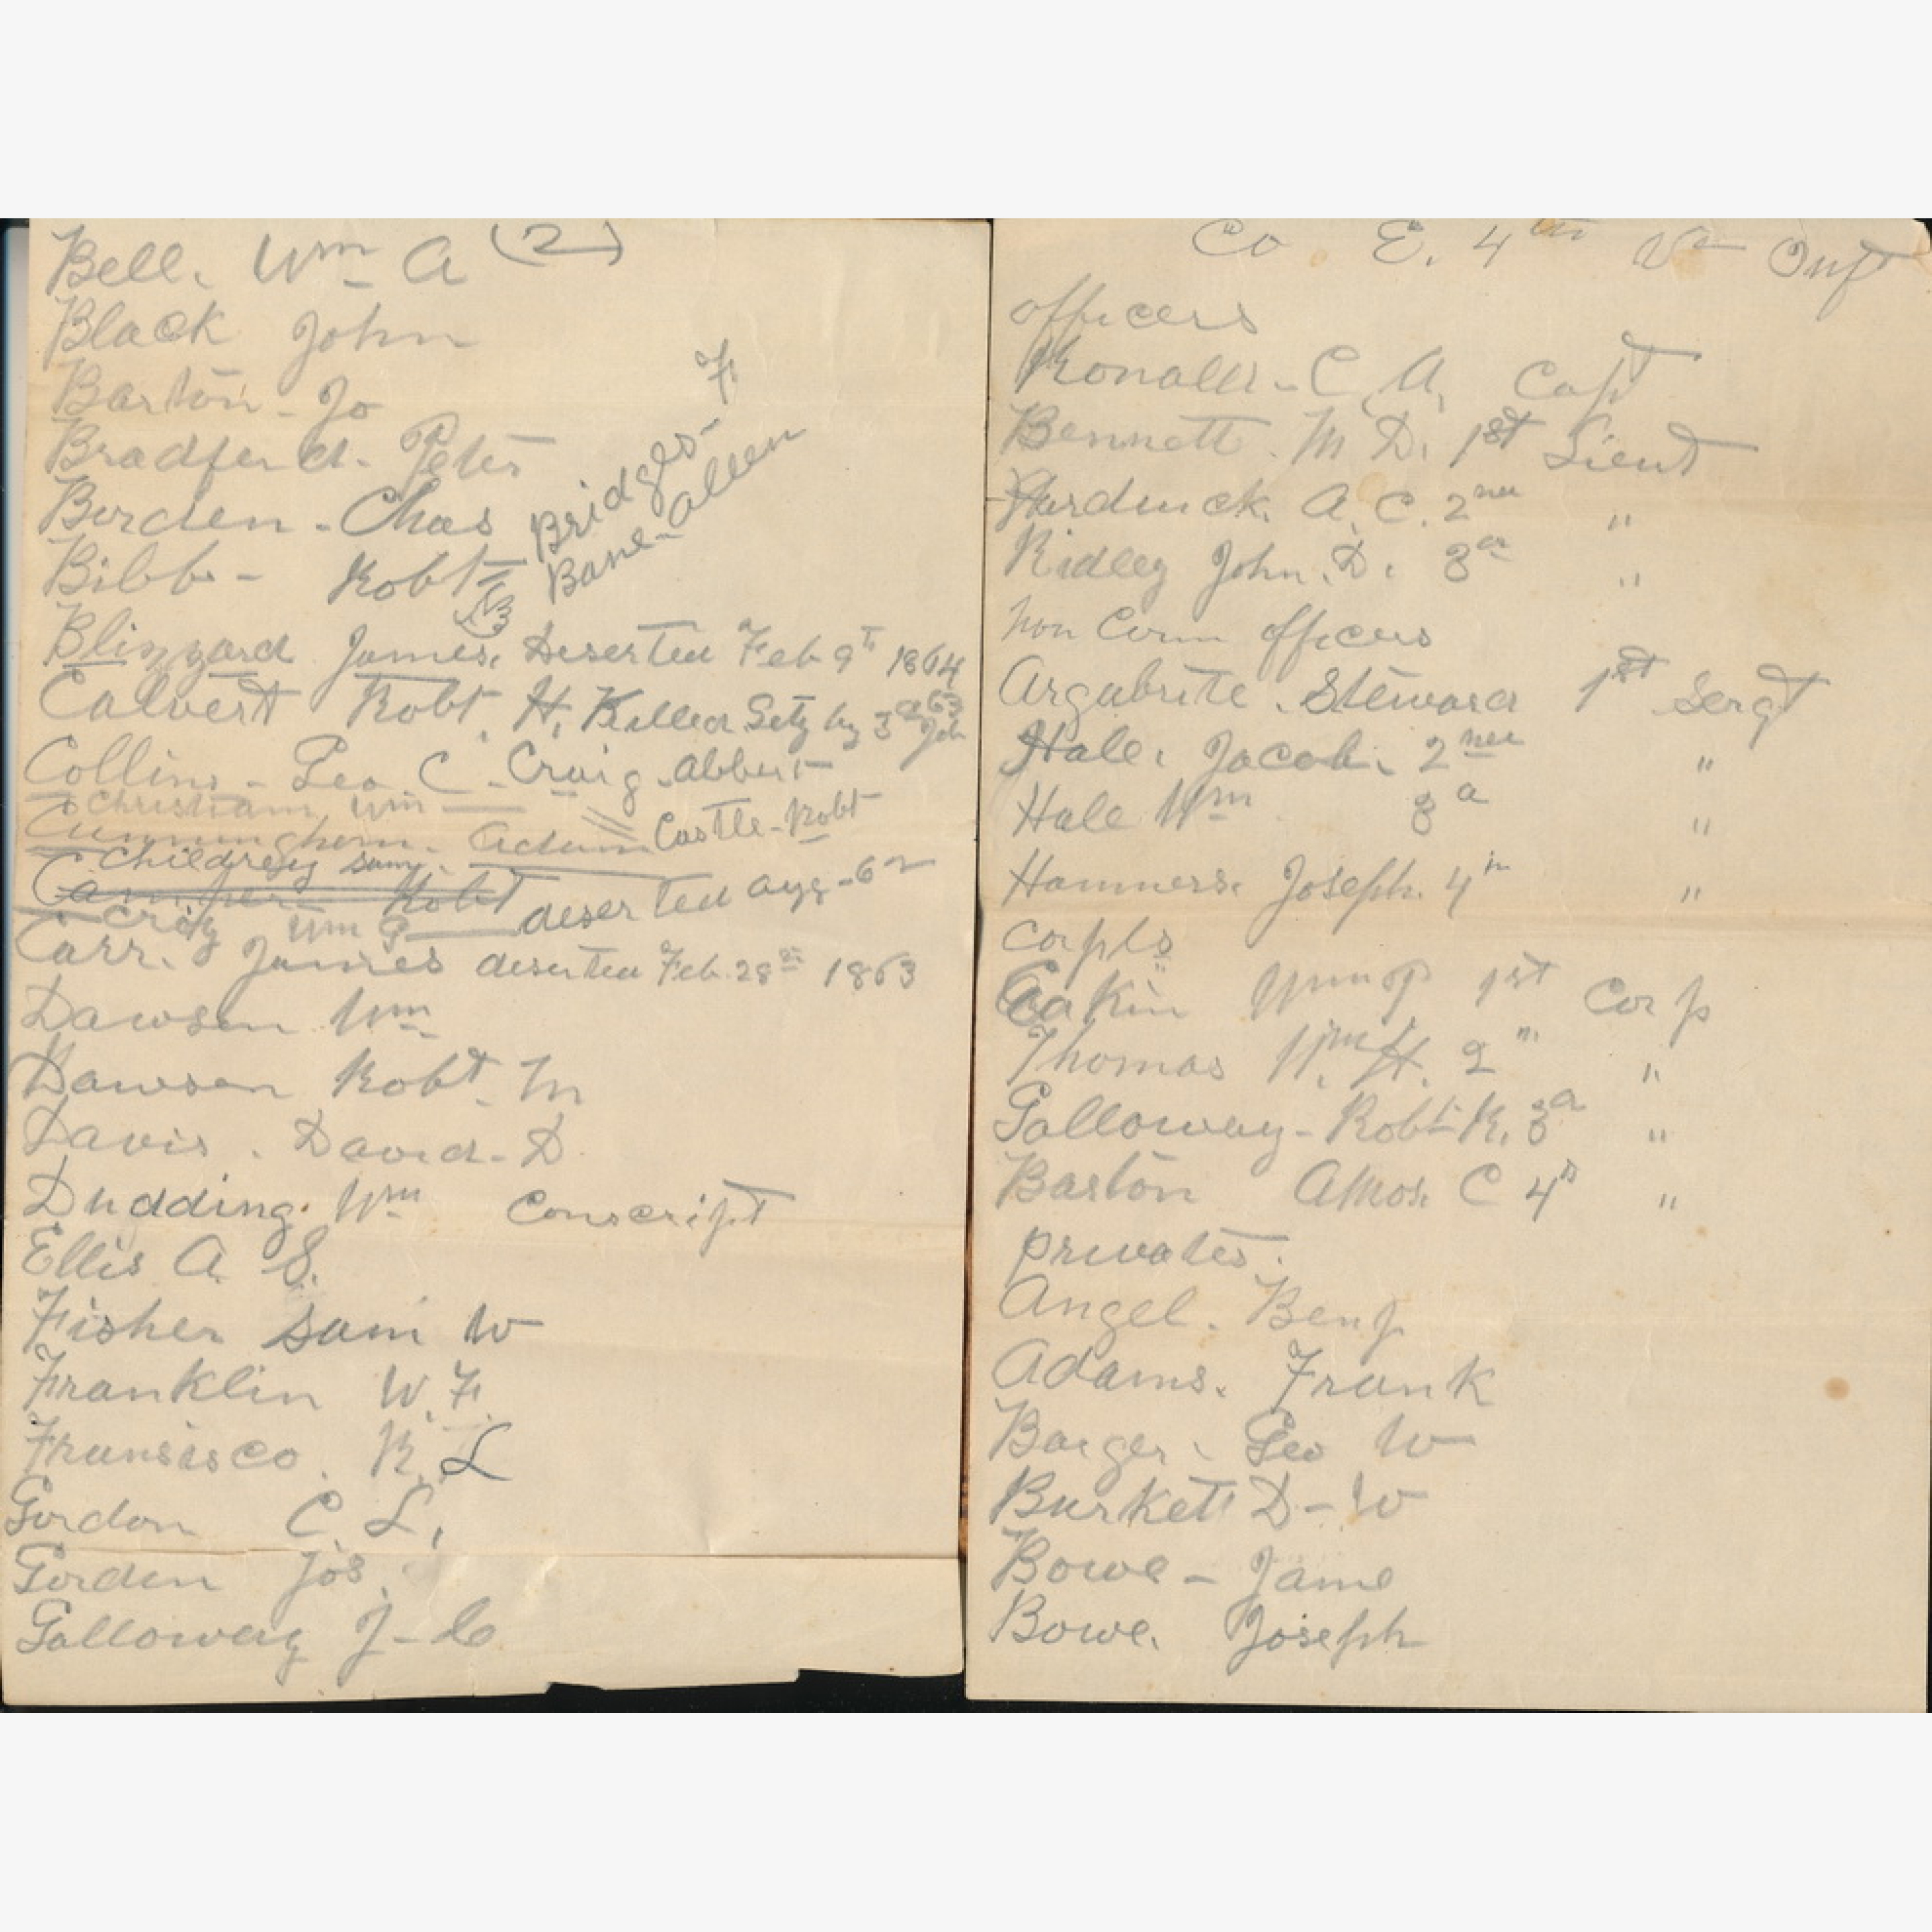 Bell. Wm A (2)
Black John
Barton - Jo
Bradferd. Peter
Borden - Chas
Bridges - F
Bane - Allen
Bibb - Robt
Blizzard James. Deserted Feb 9th 1864
Calvert Robt. H. Killed Getzbg 3d Jul 63
Collins - Geo C - Craig - Abbert
Christian Wm
Cunninghem - Adam Castle - Robt
Childress Sam
Camper Robt deserted Aug - 62
Craig Wm G
Carr. James deserted Feb. 28th 1863
Dawson Wm
Dawson Robt. M
Davis. David - D
Dudding. Wm Conscript
Ellis A. S.
Fisher Sam W
Franklin W. F.
Fransisco. R. L
Gordon C. L.
Gorden Jos.
Galloway J - C
Co E. 4th Va Inft
officers
Ronald - C. A. Capt
Bennett. M D. 1st Lieut
Hardwick. A. C. 2nd "
Ridley John. D. 3d "
Non Com officers
Argabrite. Steward 1st Sergt
Hale. Jacob. 2nd "
Hale Wm 3d "
Hammers. Joseph. 4th "
Corpls
Eakin Wm P 1st Corp
Thomas Wm H. 2n "
Galloway - Robt K. 3d "
Barton Amos. C 4th "
privates.
Angel. Benj
Adams. Frank
Barger. Geo W
Burkett D - W
Bowe - Jame
Bowe. Joseph